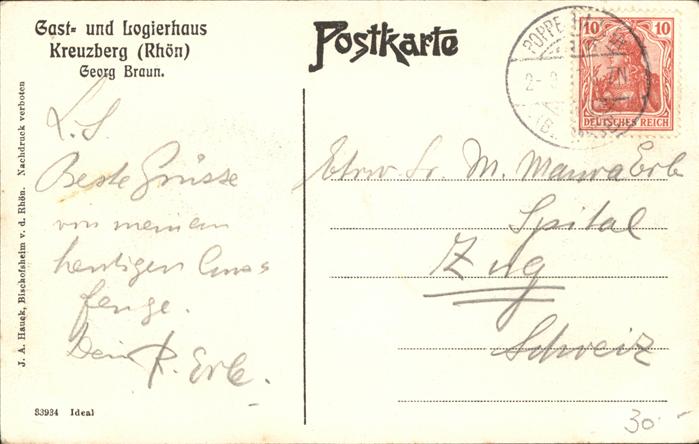 Gast- und Logierhaus
Kreuzberg (Rhön)
Georg Braun.
Postkarte
POPPE
2. 8.
10 10
DEUTSCHES REICH
J. A. Hauck, Bischofsheim v. d. Rhön. Nachdruck verboten
L. S.
Beste Grüsse
von meinem
heutigen Aus-
fluge.
Dein P. Erle.
Ehrw Sr. M. Maura Erle
Spital
Zug
Schweiz
83934 Ideal
30.-